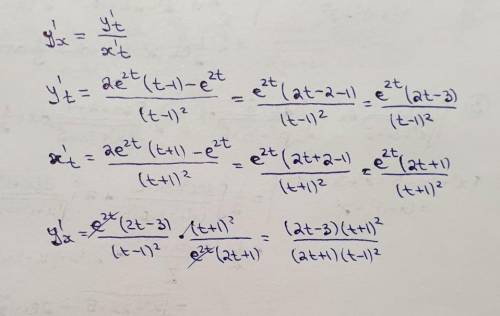 y'x = y't / x't
y't = 2e^2t (t-1) - e^2t / (t-1)^2 = e^2t (2t-2-1) / (t-1)^2 = e^2t (2t-3) / (t-1)^2
x't = 2e^2t (t+1) - e^2t / (t+1)^2 = e^2t (2t+2-1) / (t+1)^2 = e^2t (2t+1) / (t+1)^2
y'x = e^2t (2t-3) / (t-1)^2 · (t+1)^2 / e^2t (2t+1) = (2t-3)(t+1)^2 / (2t+1)(t-1)^2